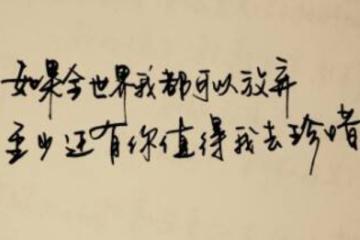 如果全世界我都可以放弃
至少还有你值得我去珍惜